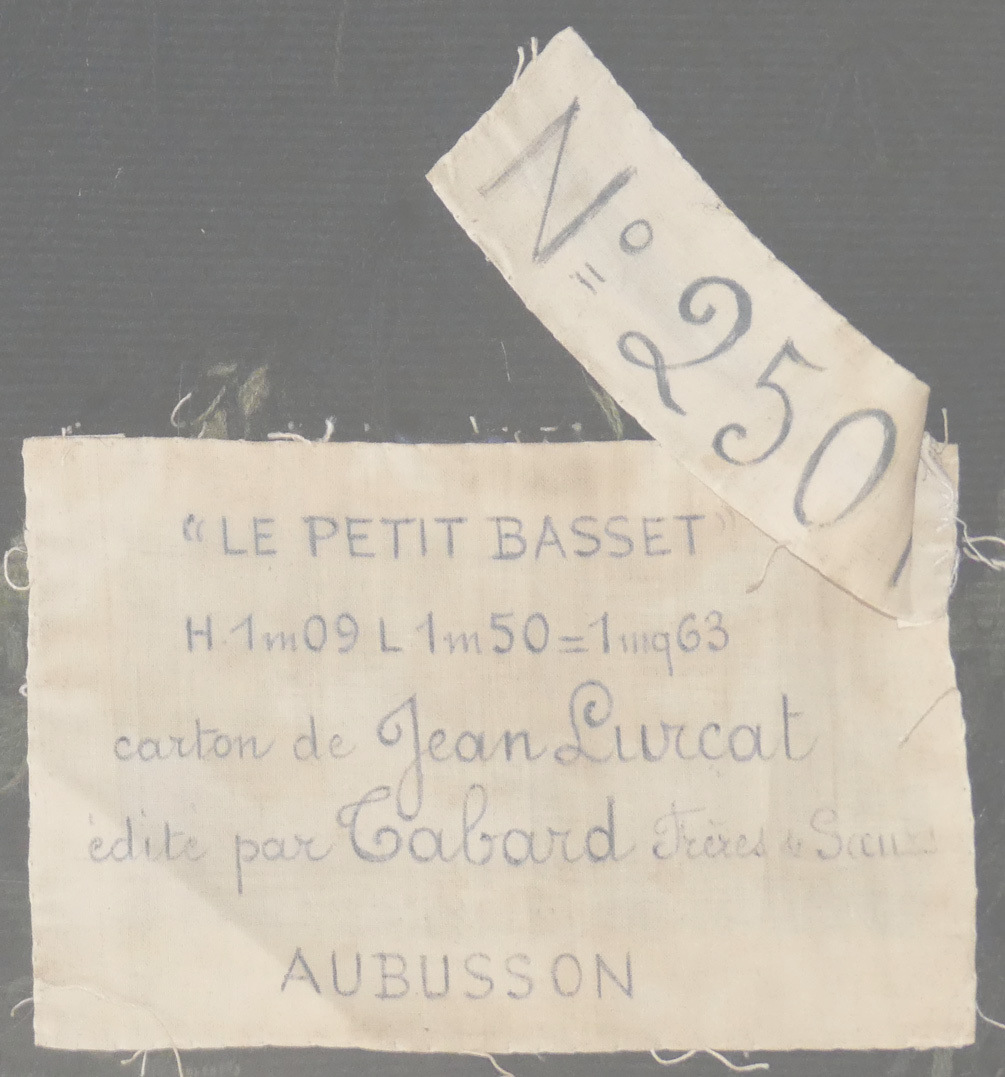 N° 250
“LE PETIT BASSET”
H.1m09 L 1m50=1mq63
carton de Jean Lurcat
édité par Tabard Frères & Soeurs
AUBUSSON